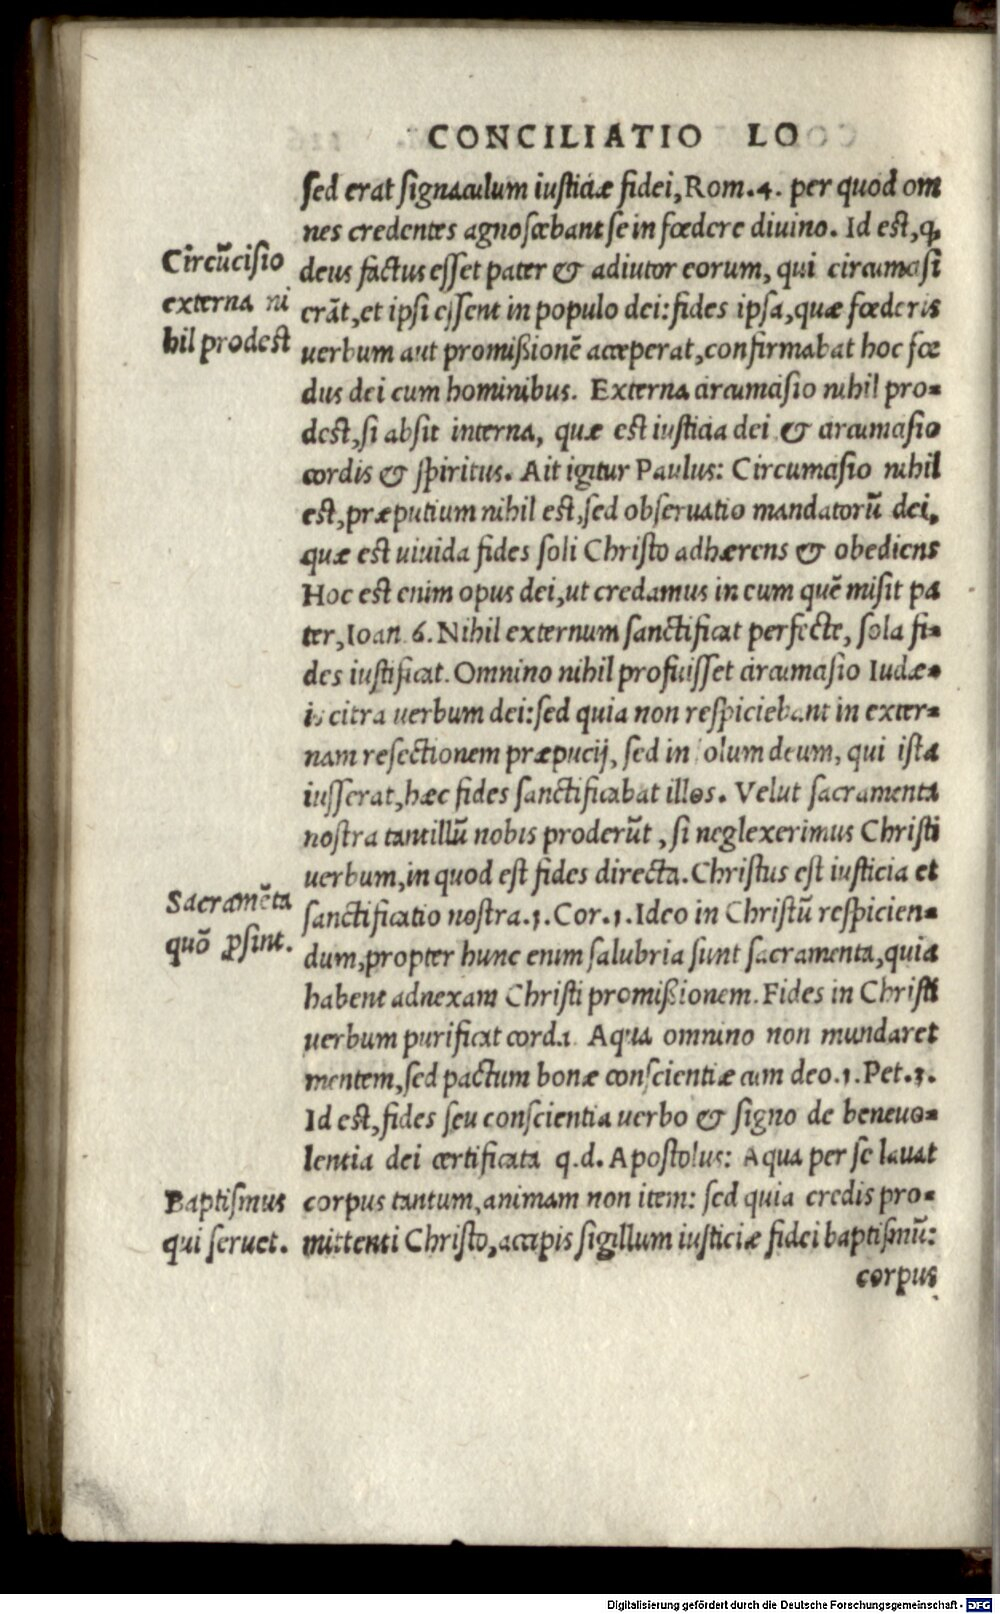 CONCILIATIO LO
sed erat signaculum iusticiæ fidei, Rom.4. per quod om
nes credentes agnoscebant se in fœdere diuino. Id est, ꝙ
Circūcisio
externa ni
hil prodest
deus factus esset pater & adiutor eorum, qui circumcisi
erāt, et ipsi essent in populo dei: fides ipsa, quæ fœderis
uerbum aut promißionē acceperat, confirmabat hoc fœ
dus dei cum hominibus. Externa circumcisio nihil pro=
dest, si absit interna, quæ est iusticia dei & circumcisio
cordis & spiritus. Ait igitur Paulus: Circumcisio nihil
est, præputium nihil est, sed obseruatio mandatorū dei,
quæ est uiuida fides soli Christo adhærens & obediens
Hoc est enim opus dei, ut credamus in eum quē misit pa
ter, Ioan. 6. Nihil externum sanctificat perfecte, sola fi=
des iustificat. Omnino nihil profuisset circumcisio Iudæ=
is citra uerbum dei: sed quia non respiciebant in exter=
nam resectionem præpucij, sed in solum deum, qui ista
iusserat, hæc fides sanctificabat illos. Velut sacramenta
nostra tantillū nobis proderūt, si neglexerimus Christi
uerbum, in quod est fides directa. Christus est iusticia et
Sacramēta
quō ꝓsint.
sanctificatio nostra.1.Cor.1. Ideo in Christū respicien=
dum, propter hunc enim salubria sunt sacramenta, quia
habent adnexam Christi promißionem. Fides in Christi
uerbum purificat corda. Aqua omnino non mundaret
mentem, sed pactum bonæ conscientiæ cum deo.1.Pet.3.
Id est, fides seu conscientia uerbo & signo de beneuo=
lentia dei certificata q.d. Apostolus: Aqua per se lauat
Baptismus
qui seruet.
corpus tantum, animam non item: sed quia credis pro=
mittenti Christo, accipis sigillum iusticiæ fidei baptismū:
corpus
Digitalisierung gefördert durch die Deutsche Forschungsgemeinschaft - DFG